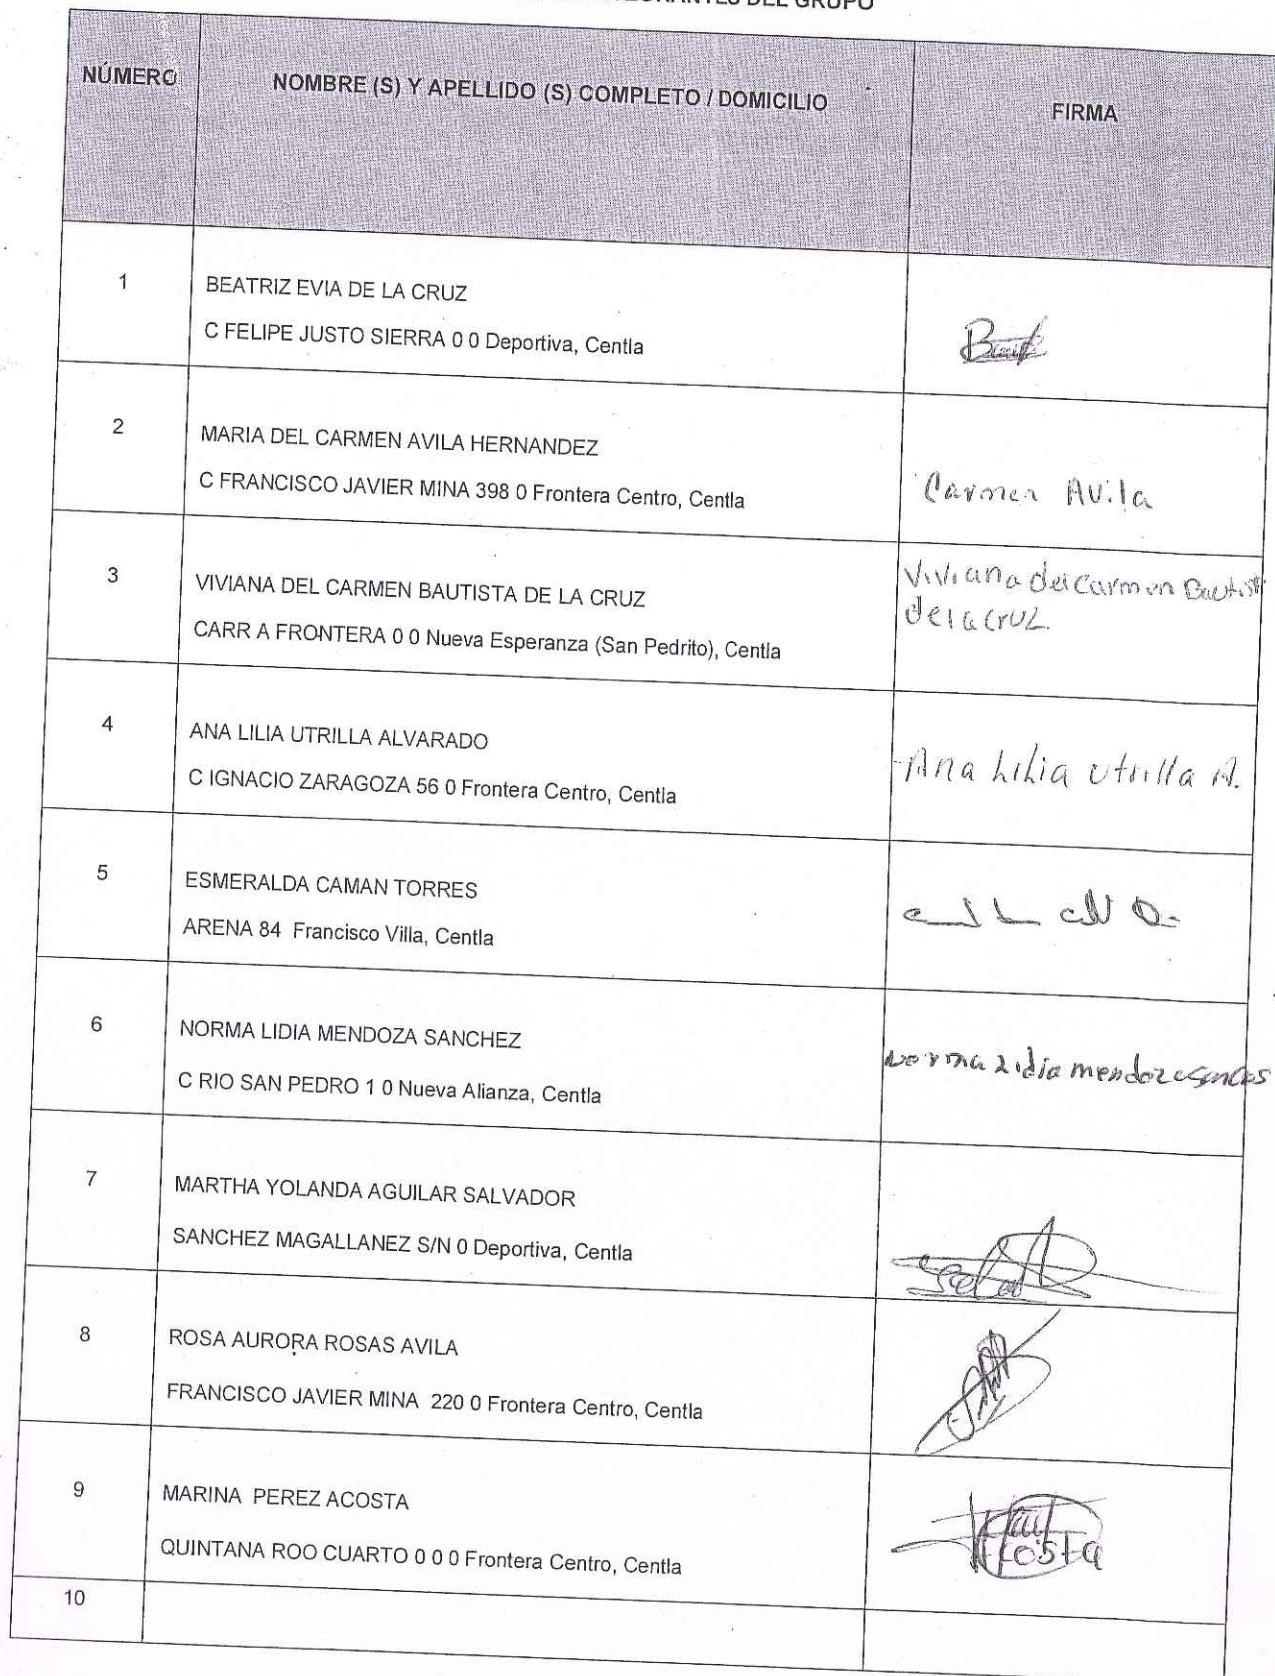 INTEGRANTES DEL GRUPO
NÚMERO NOMBRE (S) Y APELLIDO (S) COMPLETO / DOMICILIO FIRMA
1 BEATRIZ EVIA DE LA CRUZ
C FELIPE JUSTO SIERRA 0 0 Deportiva, Centla
2 MARIA DEL CARMEN AVILA HERNANDEZ
C FRANCISCO JAVIER MINA 398 0 Frontera Centro, Centla
Carmen Avila
3 VIVIANA DEL CARMEN BAUTISTA DE LA CRUZ
CARR A FRONTERA 0 0 Nueva Esperanza (San Pedrito), Centla
Viviana del Carmen Bautist
de la Cruz.
4 ANA LILIA UTRILLA ALVARADO
C IGNACIO ZARAGOZA 56 0 Frontera Centro, Centla
Ana Lilia Utrilla A.
5 ESMERALDA CAMAN TORRES
ARENA 84 Francisco Villa, Centla
6 NORMA LIDIA MENDOZA SANCHEZ
C RIO SAN PEDRO 1 0 Nueva Alianza, Centla
Norma Lidia mendoza
7 MARTHA YOLANDA AGUILAR SALVADOR
SANCHEZ MAGALLANEZ S/N 0 Deportiva, Centla
8 ROSA AURORA ROSAS AVILA
FRANCISCO JAVIER MINA 220 0 Frontera Centro, Centla
9 MARINA PEREZ ACOSTA
QUINTANA ROO CUARTO 0 0 0 Frontera Centro, Centla
10